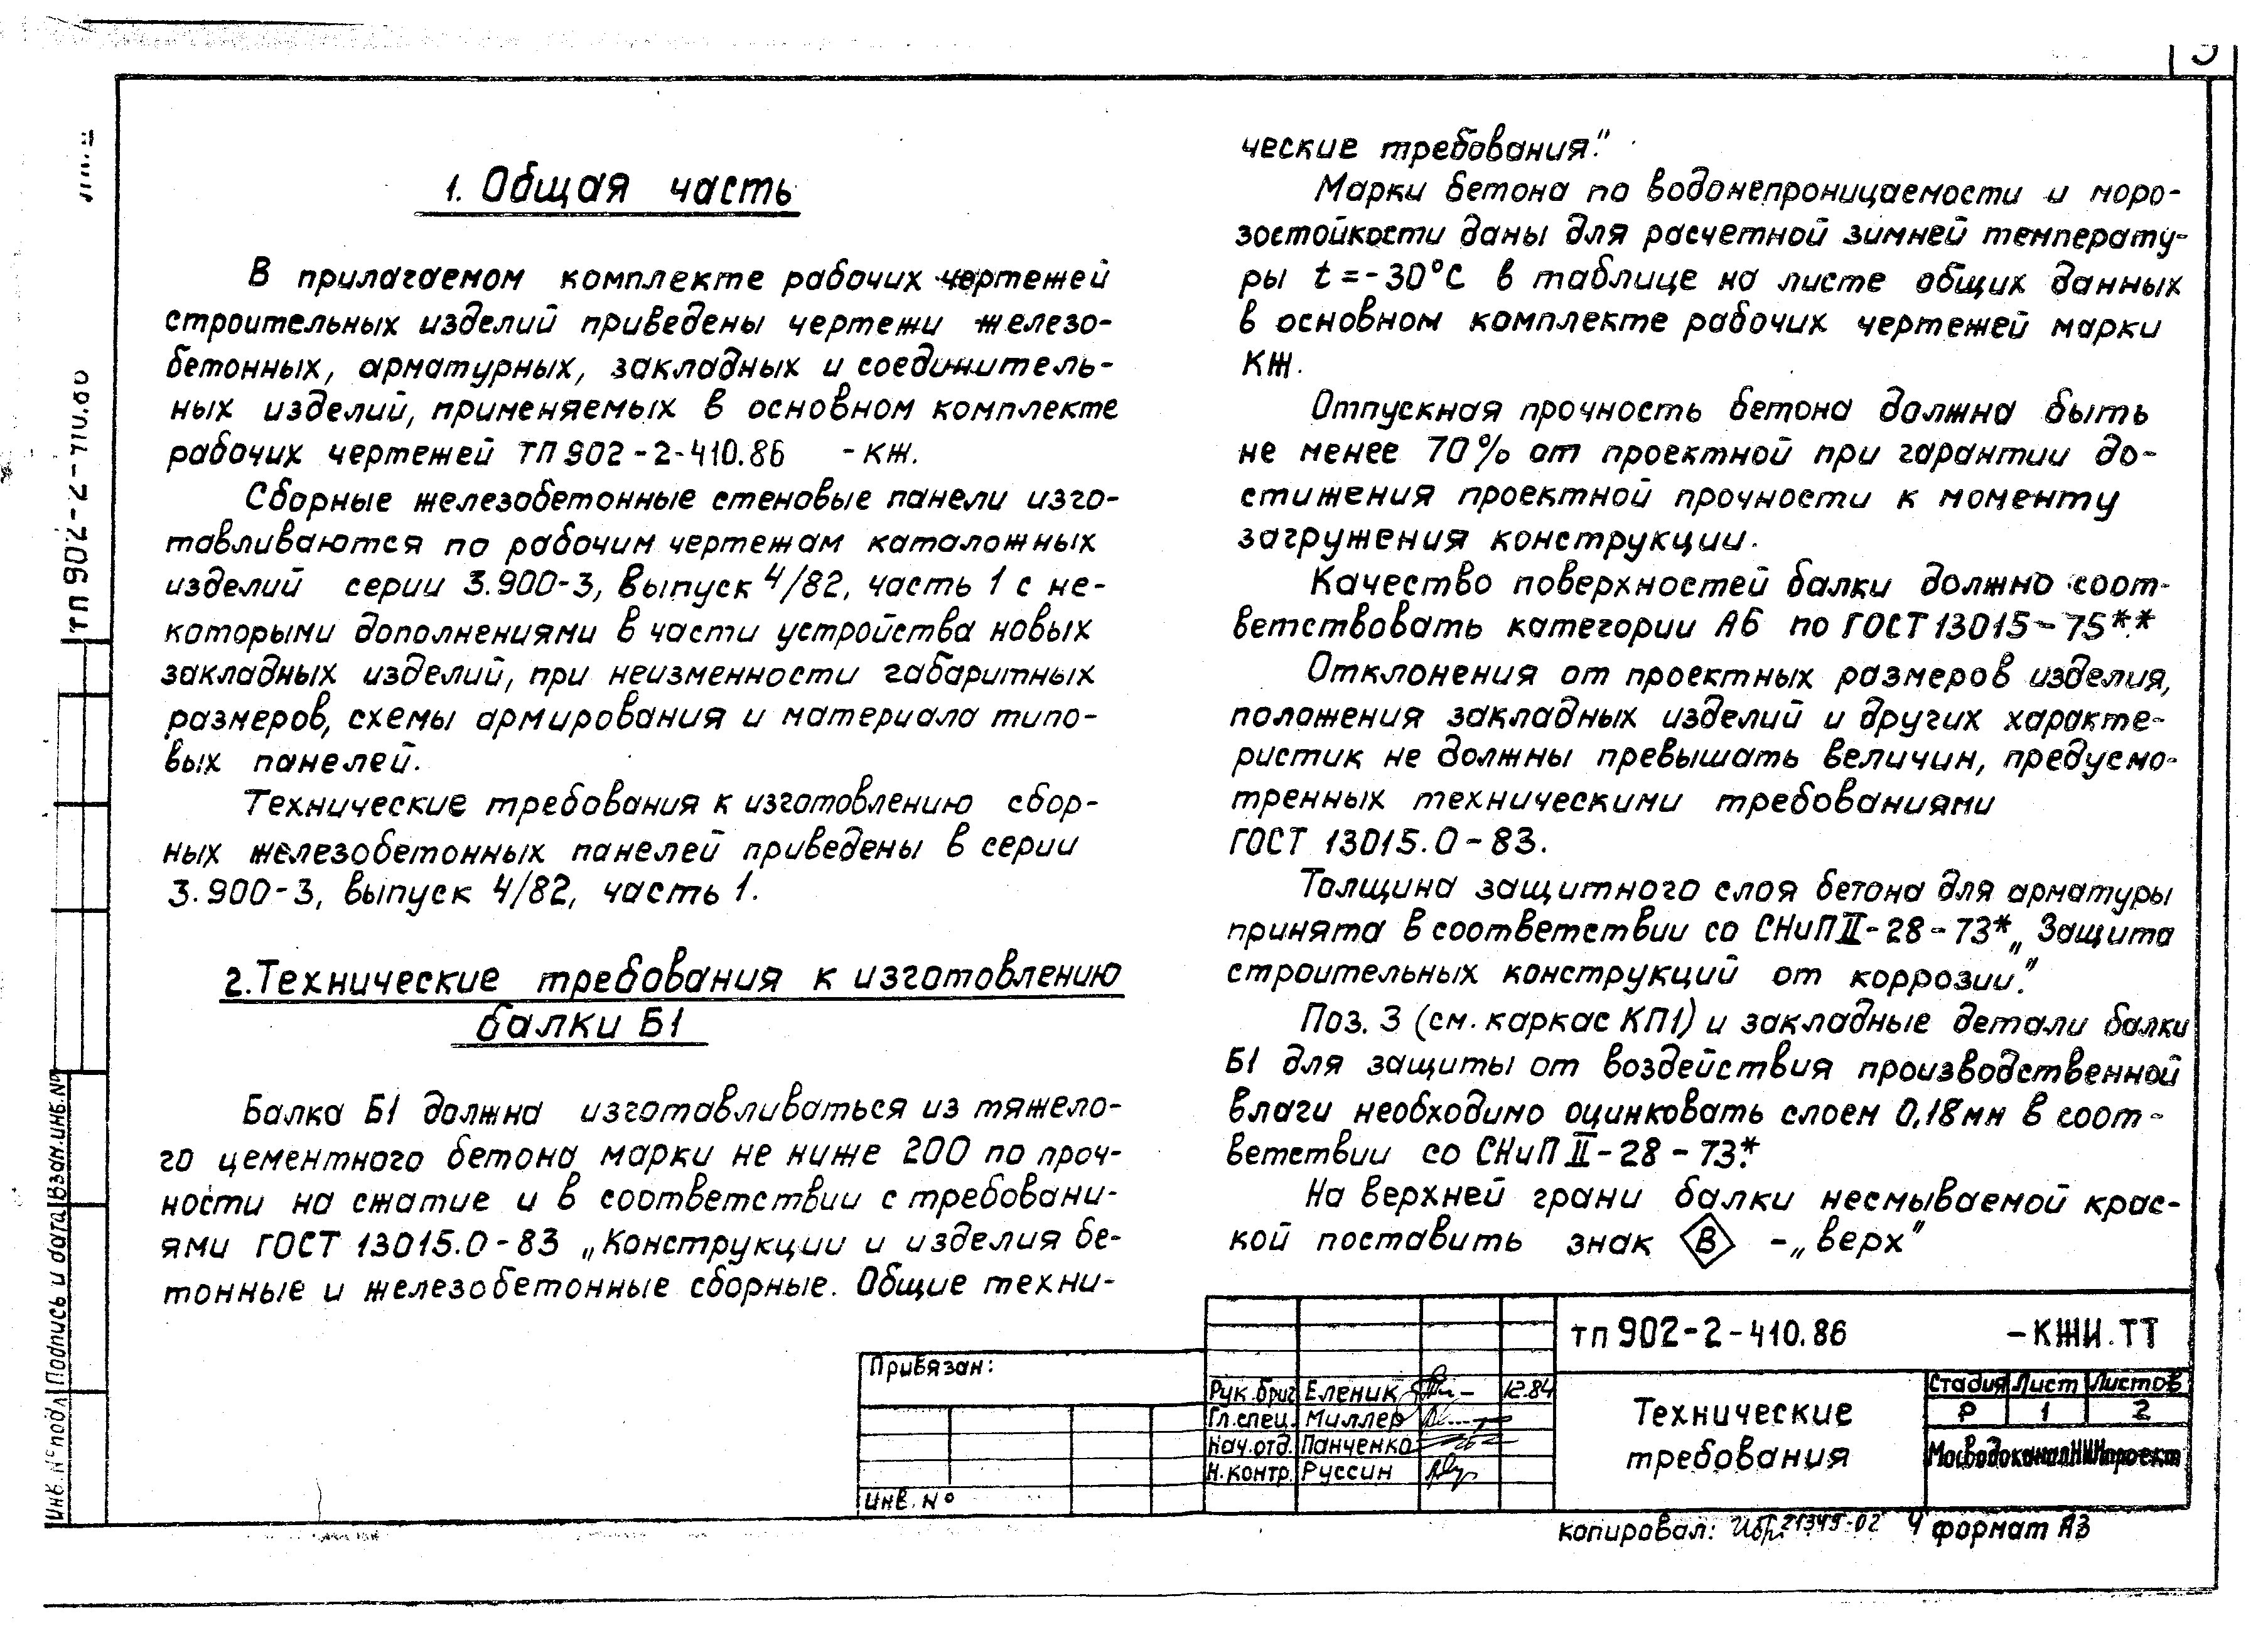 1. Общая часть
В прилагаемом комплекте рабочих чертежей
строительных изделий приведены чертежи железо-
бетонных, арматурных, закладных и соединитель-
ных изделий, применяемых в основном комплекте
рабочих чертежей ТП 902-2-410.86 -КЖ.
Сборные железобетонные стеновые панели изго-
тавливаются по рабочим чертежам каталожных
изделий серии 3.900-3, выпуск 4/82, часть 1 с не-
которыми дополнениями в части устройства новых
закладных изделий, при неизменности габаритных
размеров, схемы армирования и материала типо-
вых панелей.
Технические требования к изготовлению сбор-
ных железобетонных панелей приведены в серии
3.900-3, выпуск 4/82, часть 1.
2. Технические требования к изготовлению
балки Б1
Балка Б1 должна изготавливаться из тяжело-
го цементного бетона марки не ниже 200 по проч-
ности на сжатие и в соответствии с требовани-
ями ГОСТ 13015.0-83 „Конструкции и изделия бе-
тонные и железобетонные сборные. Общие техни-
ческие требования."
Марки бетона по водонепроницаемости и моро-
зостойкости даны для расчетной зимней температу-
ры t=-30°С в таблице на листе общих данных
в основном комплекте рабочих чертежей марки
КЖ.
Отпускная прочность бетона должна быть
не менее 70% от проектной при гарантии до-
стижения проектной прочности к моменту
загружения конструкции.
Качество поверхностей балки должно соот-
ветствовать категории А6 по ГОСТ 13015-75**.
Отклонения от проектных размеров изделия,
положения закладных изделий и других характе-
ристик не должны превышать величин, предусмо-
тренных техническими требованиями
ГОСТ 13015.0-83.
Толщина защитного слоя бетона для арматуры
принята в соответствии со СНиП II-28-73* „Защита
строительных конструкций от коррозии."
Поз. 3 (см. каркас КП1) и закладные детали балки
Б1 для защиты от воздействия производственной
влаги необходимо оцинковать слоем 0,18мм в соот-
ветствии со СНиП II-28-73*.
На верхней грани балки несмываемой крас-
кой поставить знак В -„верх"
ТП 902-2-410.86 -КЖИ.ТТ
Привязан:
Инв. №
Рук.бриг. Еленик 12.84
Гл.спец. Миллер
Нач.отд. Панченко
Н.контр. Руссин
Технические
требования
Стадия Лист Листов
Р 1 2
МосводоканалНИИпроект
копировал: 21345-02 4 формат А3
ТП 902-2-410.86
Инв. № подл. Подпись и дата Взам.инв.№